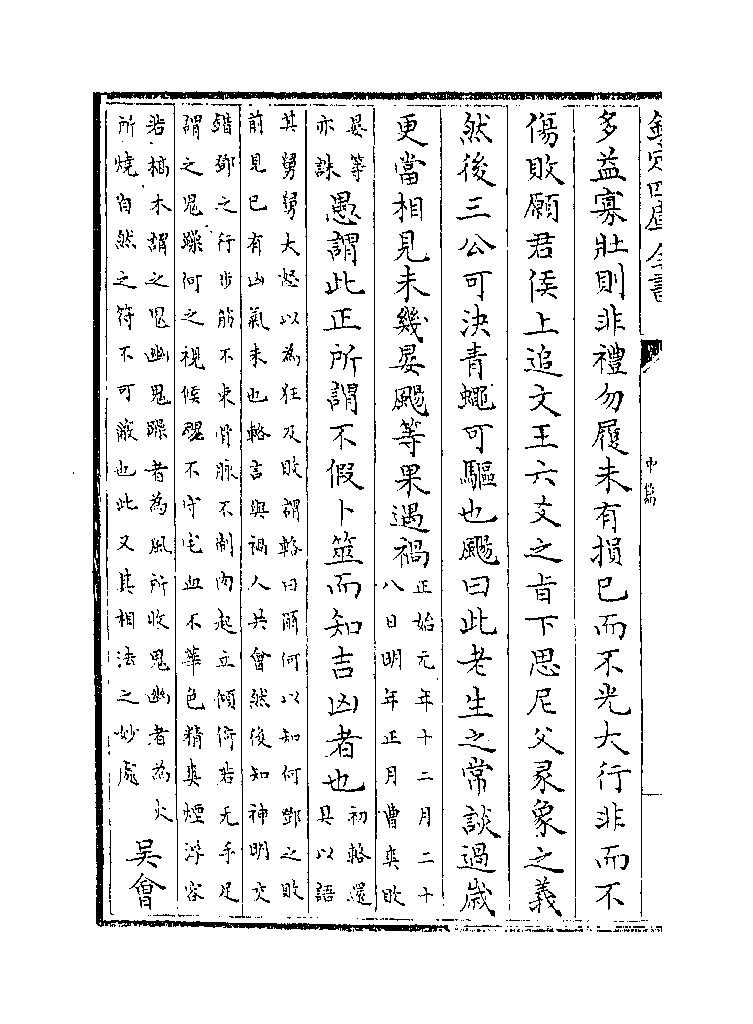 欽定四庫全書
中編
多益寡壯則非禮勿履未有損已而不光大行非而不
傷敗願君侯上追文王六爻之旨下思尼父彖象之義
然後三公可決青蠅可驅也颺曰此老生之常談過歲
更當相見未幾晏颺等果遇禍
正始元年十二月二十
八日明年正月曹爽敗
晏等
亦誅
愚謂此正所謂不假卜筮而知吉凶者也
初輅還
具以語
其舅舅大怒以為狂及敗謂輅曰爾何以知何鄧之敗
前見已有凶氣未也輅言與禍人共會然後知神明交
錯鄧之行步筋不束骨脉不制肉起立傾倚若无手足
謂之鬼躁何之視候魂不守宅血不華色精爽煙浮容
若槁木謂之鬼幽鬼躁者為風所收鬼幽者為火
所燒自然之符不可蔽也此又其相法之妙處
吳會